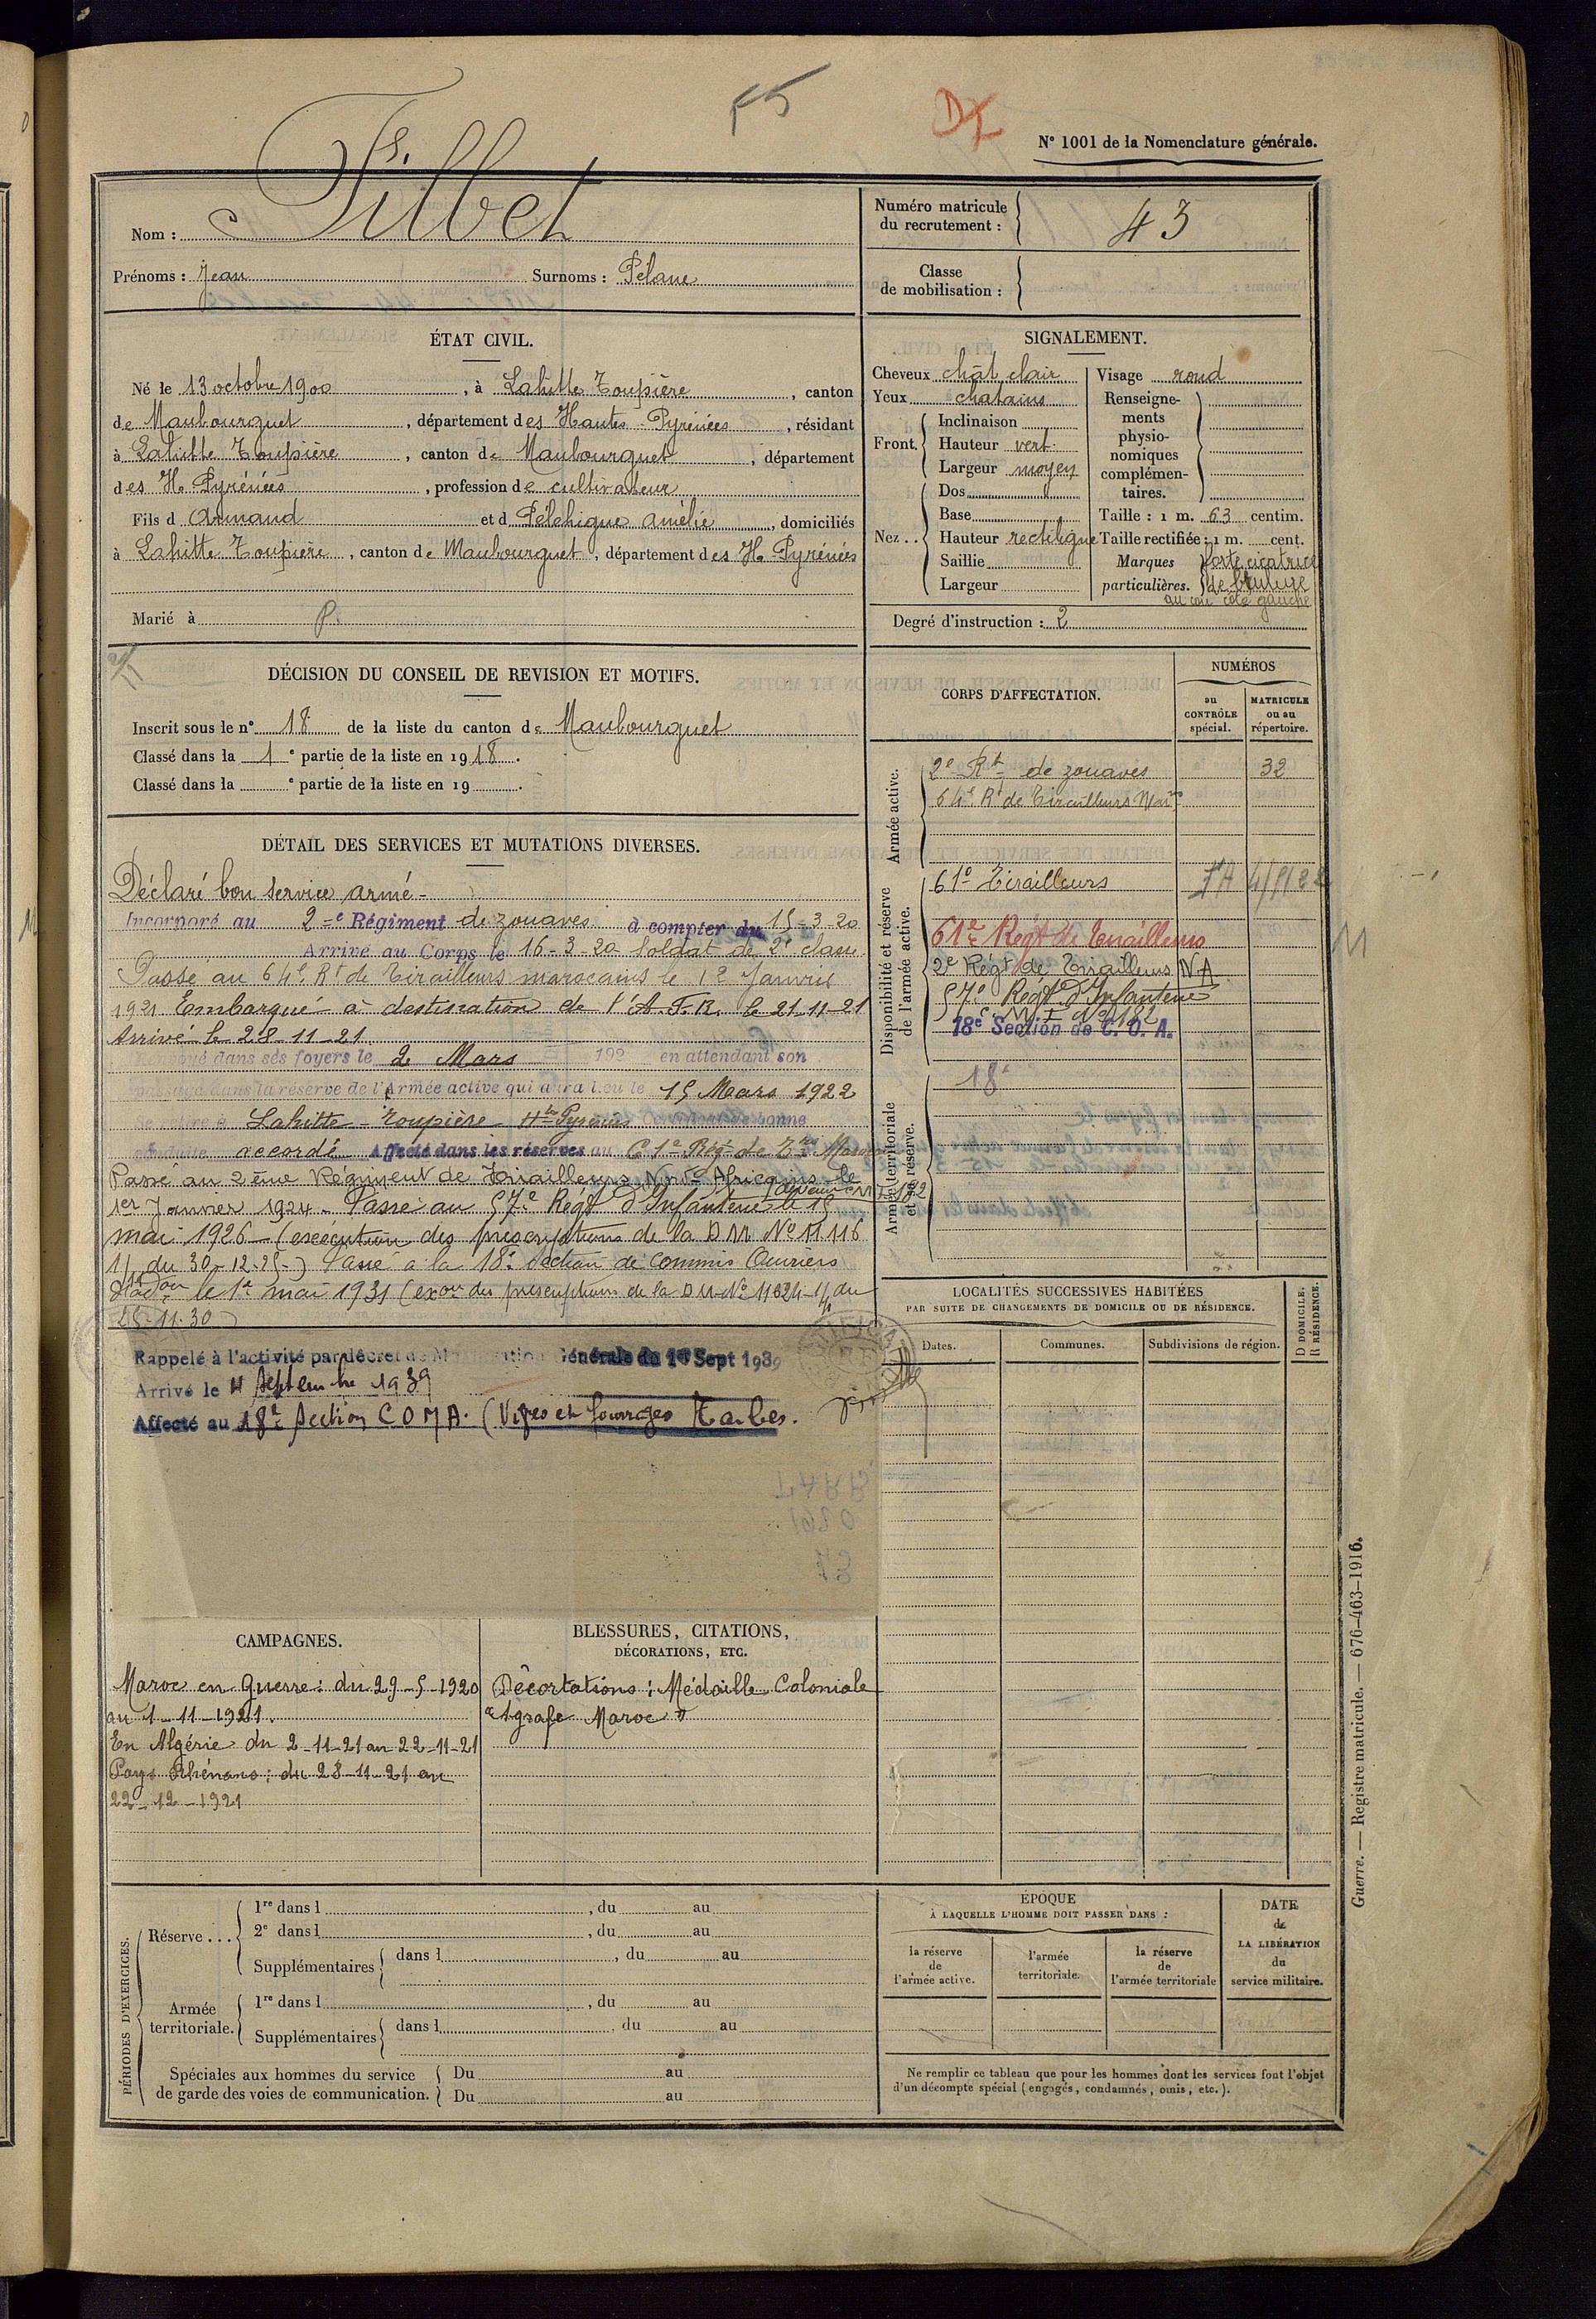 F5
DF
N° 1001 de la Nomenclature générale.
Nom : Filbet
Prénoms : Jean Surnoms : Pélane
Numéro matricule du recrutement : 43
Classe de mobilisation :
ÉTAT CIVIL.
Né le 13 octobre 1900, à Lahitte Toupière, canton
de Maubourguet, département des Hautes-Pyrénées, résidant
à Lahitte Toupière, canton de Maubourguet, département
des H. Pyrénées, profession de cultivateur
Fils d Armand et d Pélehigue Amélie, domiciliés
à Lahitte Toupière, canton de Maubourguet, département des H. Pyrénées
Marié à
SIGNALEMENT.
Cheveux chât clair
Yeux chatains
Front. Inclinaison
Hauteur vert.
Largeur moyen
Nez . . Dos
Base
Hauteur rectiligne
Saillie
Largeur
Visage rond
Renseignements physionomiques complémentaires.
Taille : 1 m. 63 centim.
Taille rectifiée : 1 m. cent.
Marques particulières. forte cicatrice
de brulure
au cou côté gauche
Degré d'instruction : 2
DÉCISION DU CONSEIL DE REVISION ET MOTIFS.
Inscrit sous le n° 18 de la liste du canton de Maubourguet
Classé dans la 1e partie de la liste en 1918.
Classé dans la e partie de la liste en 19 .
DÉTAIL DES SERVICES ET MUTATIONS DIVERSES.
Déclaré bon service armé -
Incorporé au 2e Régiment de zouaves à compter du 15-3-20
Arrivé au Corps le 16-3-20 Soldat de 2e classe.
Passé au 64e Rt de Tirailleurs marocains le 1e Janvier
1921 Embarqué à destination de l'A.F.R. le 21-11-21
Arrivé le 28-11-21
dans ses foyers le 2 Mars 192 en attendant son
passage dans la réserve de l'Armée active qui aura lieu le 15 Mars 1922
Se retire à Lahitte-Toupière Htes Pyrénées Certificat de bonne
conduite accordé Affecté dans les réserves au 61e Rég. de Trs Maroc
Passé au 2ème Régiment de Tirailleurs Nord Africains le
1er Janvier 1924 - Passé au 57e Régt d'Infanterie le 15
mai 1926 - (exécution des prescriptions de la D.M. No 11.116
1/ du 30-12-25-) Passé à la 18e Section de Commis Ouvriers
d'Adon le 1e mai 1931 (exon des prescriptions de la D M No 11624-1/ du
25-11-30)
Rappelé à l'activité par décret de Mobilisation Générale du 1er Sept 1939
Arrivé le 4 Septembre 1939
Affecté au 18e Section COMA. (Vivres et fourrages Tarbes.
CORPS D'AFFECTATION.
NUMÉROS
au CONTRÔLE spécial.
MATRICULE ou au répertoire.
Armée active.
2e Rt de zouaves 32
64e Rt de Tirailleurs Mar
Disponibilité et réserve de l'armée active.
61e Tirailleurs
61e Régt de Tirailleurs
2e Régt de Tirailleurs N.A.
57e Régt d'Infanterie
18e Section de C. O. A.
Armée territoriale et sa réserve.
18e
LOCALITÉS SUCCESSIVES HABITÉES
PAR SUITE DE CHANGEMENTS DE DOMICILE OU DE RÉSIDENCE.
Dates.
Communes.
Subdivisions de région.
D DOMICILE.
R RÉSIDENCE.
CAMPAGNES.
Maroc en guerre : du 29-5-1920
au 1-11-1921.
En Algérie du 2-11-21 au 22-11-21
Pays Rhénans : du 28-11-21 au
22-12-1921
BLESSURES, CITATIONS,
DÉCORATIONS, ETC.
Décortations : Médaille Coloniale
"Agrafe Maroc"
PÉRIODES D'EXERCICES.
Réserve . . . 1re dans l , du au
2e dans l , du au
Supplémentaires dans l , du au
Armée territoriale. 1re dans l , du au
Supplémentaires dans l , du au
Spéciales aux hommes du service de garde des voies de communication.
Du au
Du au
ÉPOQUE
À LAQUELLE L'HOMME DOIT PASSER DANS :
la réserve de l'armée active.
l'armée territoriale.
la réserve de l'armée territoriale
DATE de LA LIBÉRATION du service militaire.
Ne remplir ce tableau que pour les hommes dont les services font l'objet
d'un décompte spécial (engagés, condamnés, omis, etc.).
Guerre. — Registre matricule. — 676-463-1916.